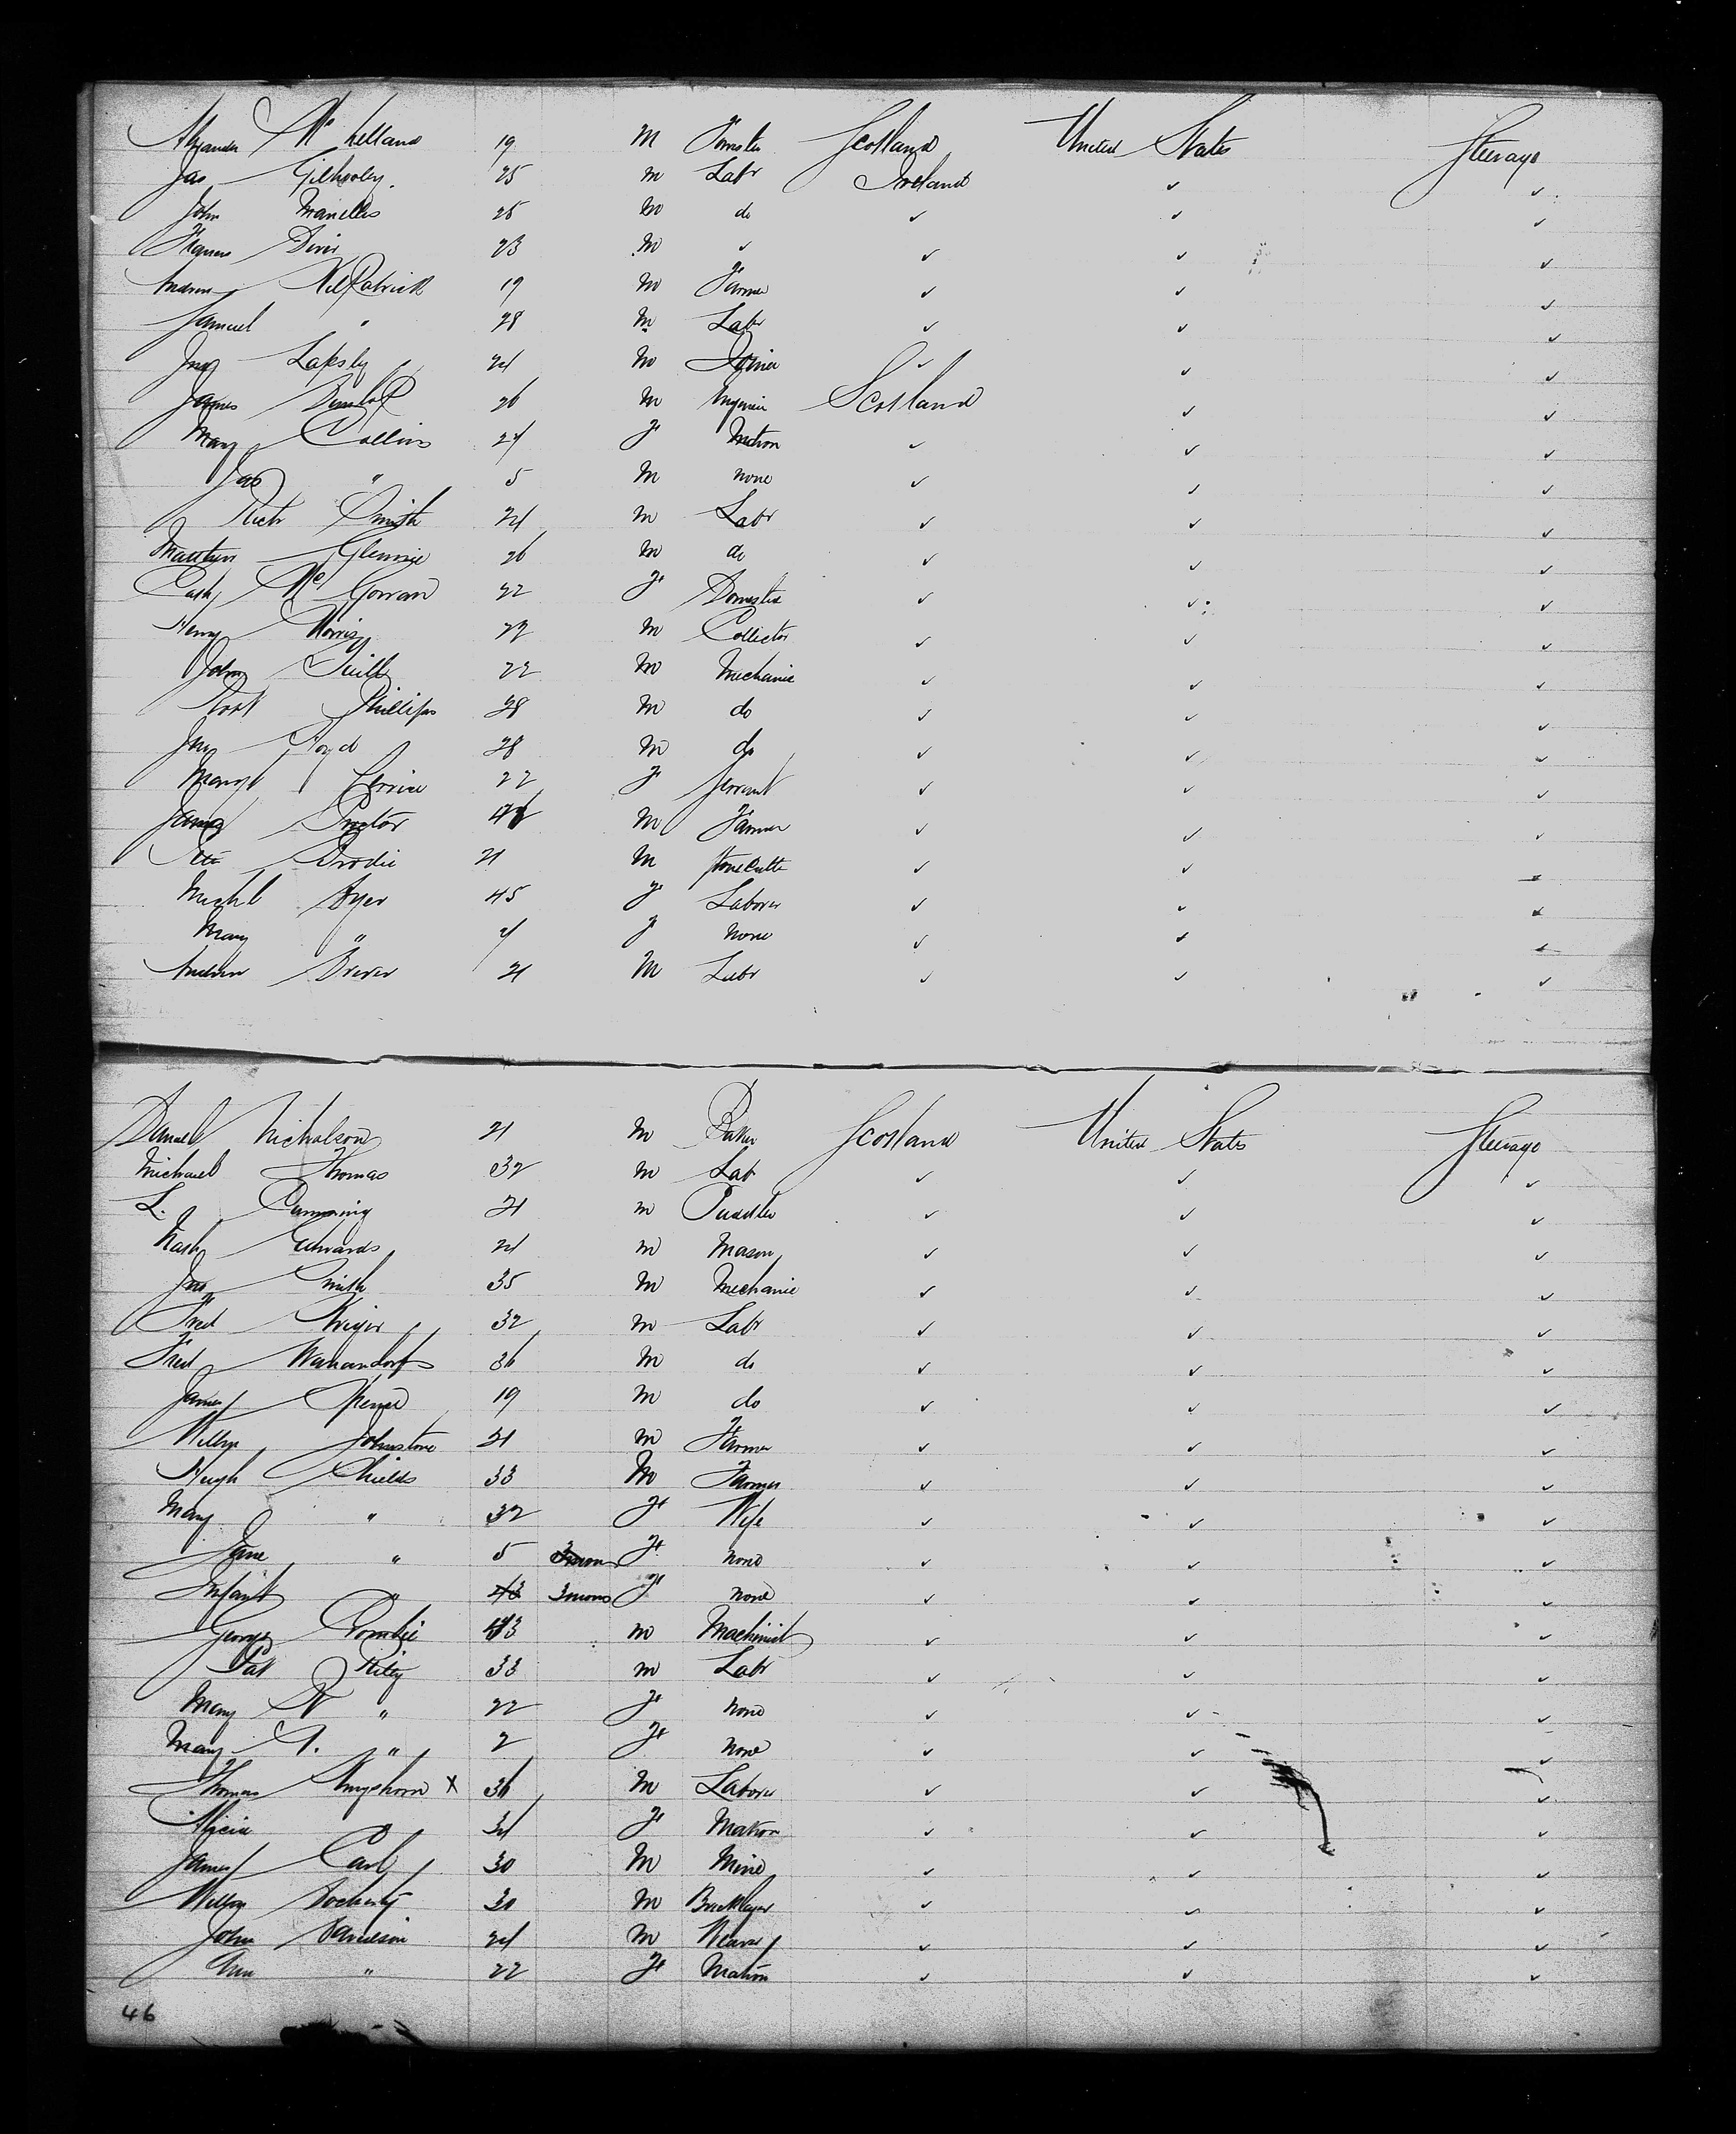 Alexander Mc Lelland 19 M Scotland United States Steerage
Jas Gilhooley 25 M Labr Ireland ✓ ✓
John 25 M do ✓ ✓ ✓
23 M ✓ ✓ ✓ ✓
Andrew KilPatrick 19 M Farmer ✓ ✓ ✓
Samuel " 28 M Labr ✓ ✓ ✓
Jno Lapsly 24 M Joiner ✓ ✓ ✓
James Dunlop 26 M Scotland ✓ ✓
Mary Collins 24 F Matron ✓ ✓ ✓
Jas " 5 M none ✓ ✓ ✓
Richr Smith 21 M Labr ✓ ✓ ✓
Matthew Glennie 26 M do ✓ ✓ ✓
Cath Mc Gowan 22 F Domestic ✓ ✓ ✓
Henry Morris M Collector ✓ ✓ ✓
John 22 M Mechanic ✓ ✓ ✓
Robt Phillips 28 M do ✓ ✓ ✓
Jno 28 M do ✓ ✓ ✓
Margt 22 F Servant ✓ ✓ ✓
James Proctor M Farmer ✓ ✓ ✓
Brodie 21 M Stonecutter ✓ ✓ ✓
Michl Dyer 45 F Laborer ✓ ✓
Mary " F none ✓ ✓
Andrew 21 M Labr ✓ ✓ ✓
Daniel Nicholson 21 M Baker Scotland United States Steerage
Michael Thomas 32 M Lab ✓ ✓ ✓
L. Cumming 21 M Puddler ✓ ✓ ✓
Edwards 24 M Mason ✓ ✓ ✓
Jno Smith 35 M Mechanic ✓ ✓ ✓
Fred 32 M Labr ✓ ✓ ✓
Fred 36 M do ✓ ✓ ✓
James Spence 19 M do ✓ ✓ ✓
Willm Johnstone 21 M Farmer ✓ ✓ ✓
Hugh Shields 33 M Farmer ✓ ✓ ✓
Mary " 32 F Wife ✓ ✓ ✓
Jane " 5 F none ✓ ✓ ✓
Infant " 3 mons F none ✓ ✓ ✓
George Crombie 43 M Machinist ✓ ✓ ✓
Pat Riley 33 M Labr ✓ ✓ ✓
Mary " 22 F none ✓ ✓ ✓
Mary A. " 2 F none ✓ ✓ ✓
Thomas X 36 M Laborer ✓ ✓ ✓
Alicia " F Matron ✓ ✓ ✓
James 30 M ✓ ✓ ✓
Willm Docherty 30 M Bricklayer ✓ ✓ ✓
John 24 M Weaver ✓ ✓ ✓
Ann " 22 F Matron ✓ ✓ ✓
46